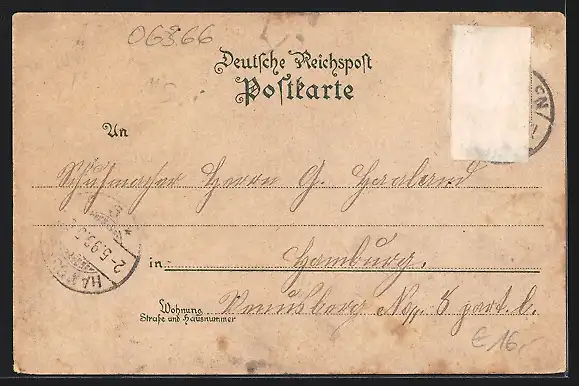 06366
Deutsche Reichspost
Postkarte
An
Schuhmacher Herrn G. Haaland
in Hamburg.
Wohnung
Straße und Hausnummer
Venusberg No. 8 part. l.
€ 16,-